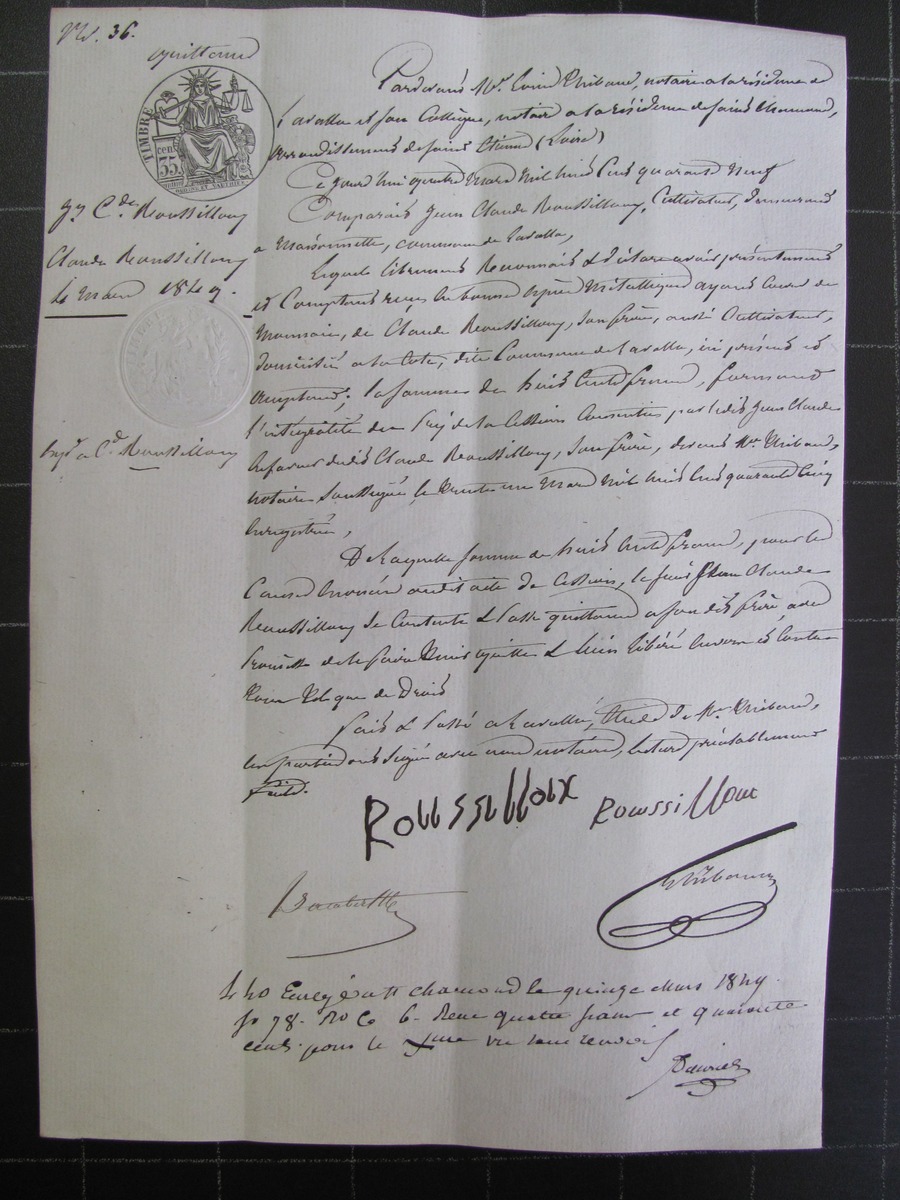 No. 36.
quittance
TIMBRE
35
Jn Cde Roussillon
Claude Roussillon
4 mars 1849.
Expn a Cde Roussillon
Pardevant Me Thibaud, notaire a la résidence de
Lavalla et son Collègue, notaire a la résidence de saint Chamond,
arrondissement de saint Etienne (Loire)
Ce jourd'hui quatre mars mil huit cent quarante neuf
Comparait Jean Claude Roussillon, Cultivateur, demeurant
a Maisonnette, commune de Lavalla,
Lequel librement Reconnait & déclare avoir présentement
et Comptant reçu en bonnes espèces métalliques ayant cours de
Monnaie, de Claude Roussillon, son frère, aussi Cultivateur,
domicilié a la Côte, dite Commune de Lavalla, ici présent et
acceptant; la somme de huit Cents francs, formant
l'intégralité du prix de la Cession Consentie par ledit Jean Claude
en faveur dudit Claude Roussillon, son frère, devant Me Thibaud,
notaire soussigné le trente un Mars mil huit cent quarante cinq
enregistrée,
De laquelle somme de huit Cents francs, pour les
Causes énoncées audit acte de Cession, ledit Jean Claude
Roussillon se Contente & passe quittance a son dit frère avec
promesse de le faire tenir quitte & bien libéré envers et Contre
tous de Droit
Fait & passé a Lavalla, Etude de Me Thibaud,
les parties ont signé avec nous notaires, lecture préalablement
faite.
Roussilloux Roussilloux
Thibaud
40 Enregé a St chamond le quinze Mars 1849
fo 78. Ro Co 6. Reçu quatre francs et quarante
cents pour le xme